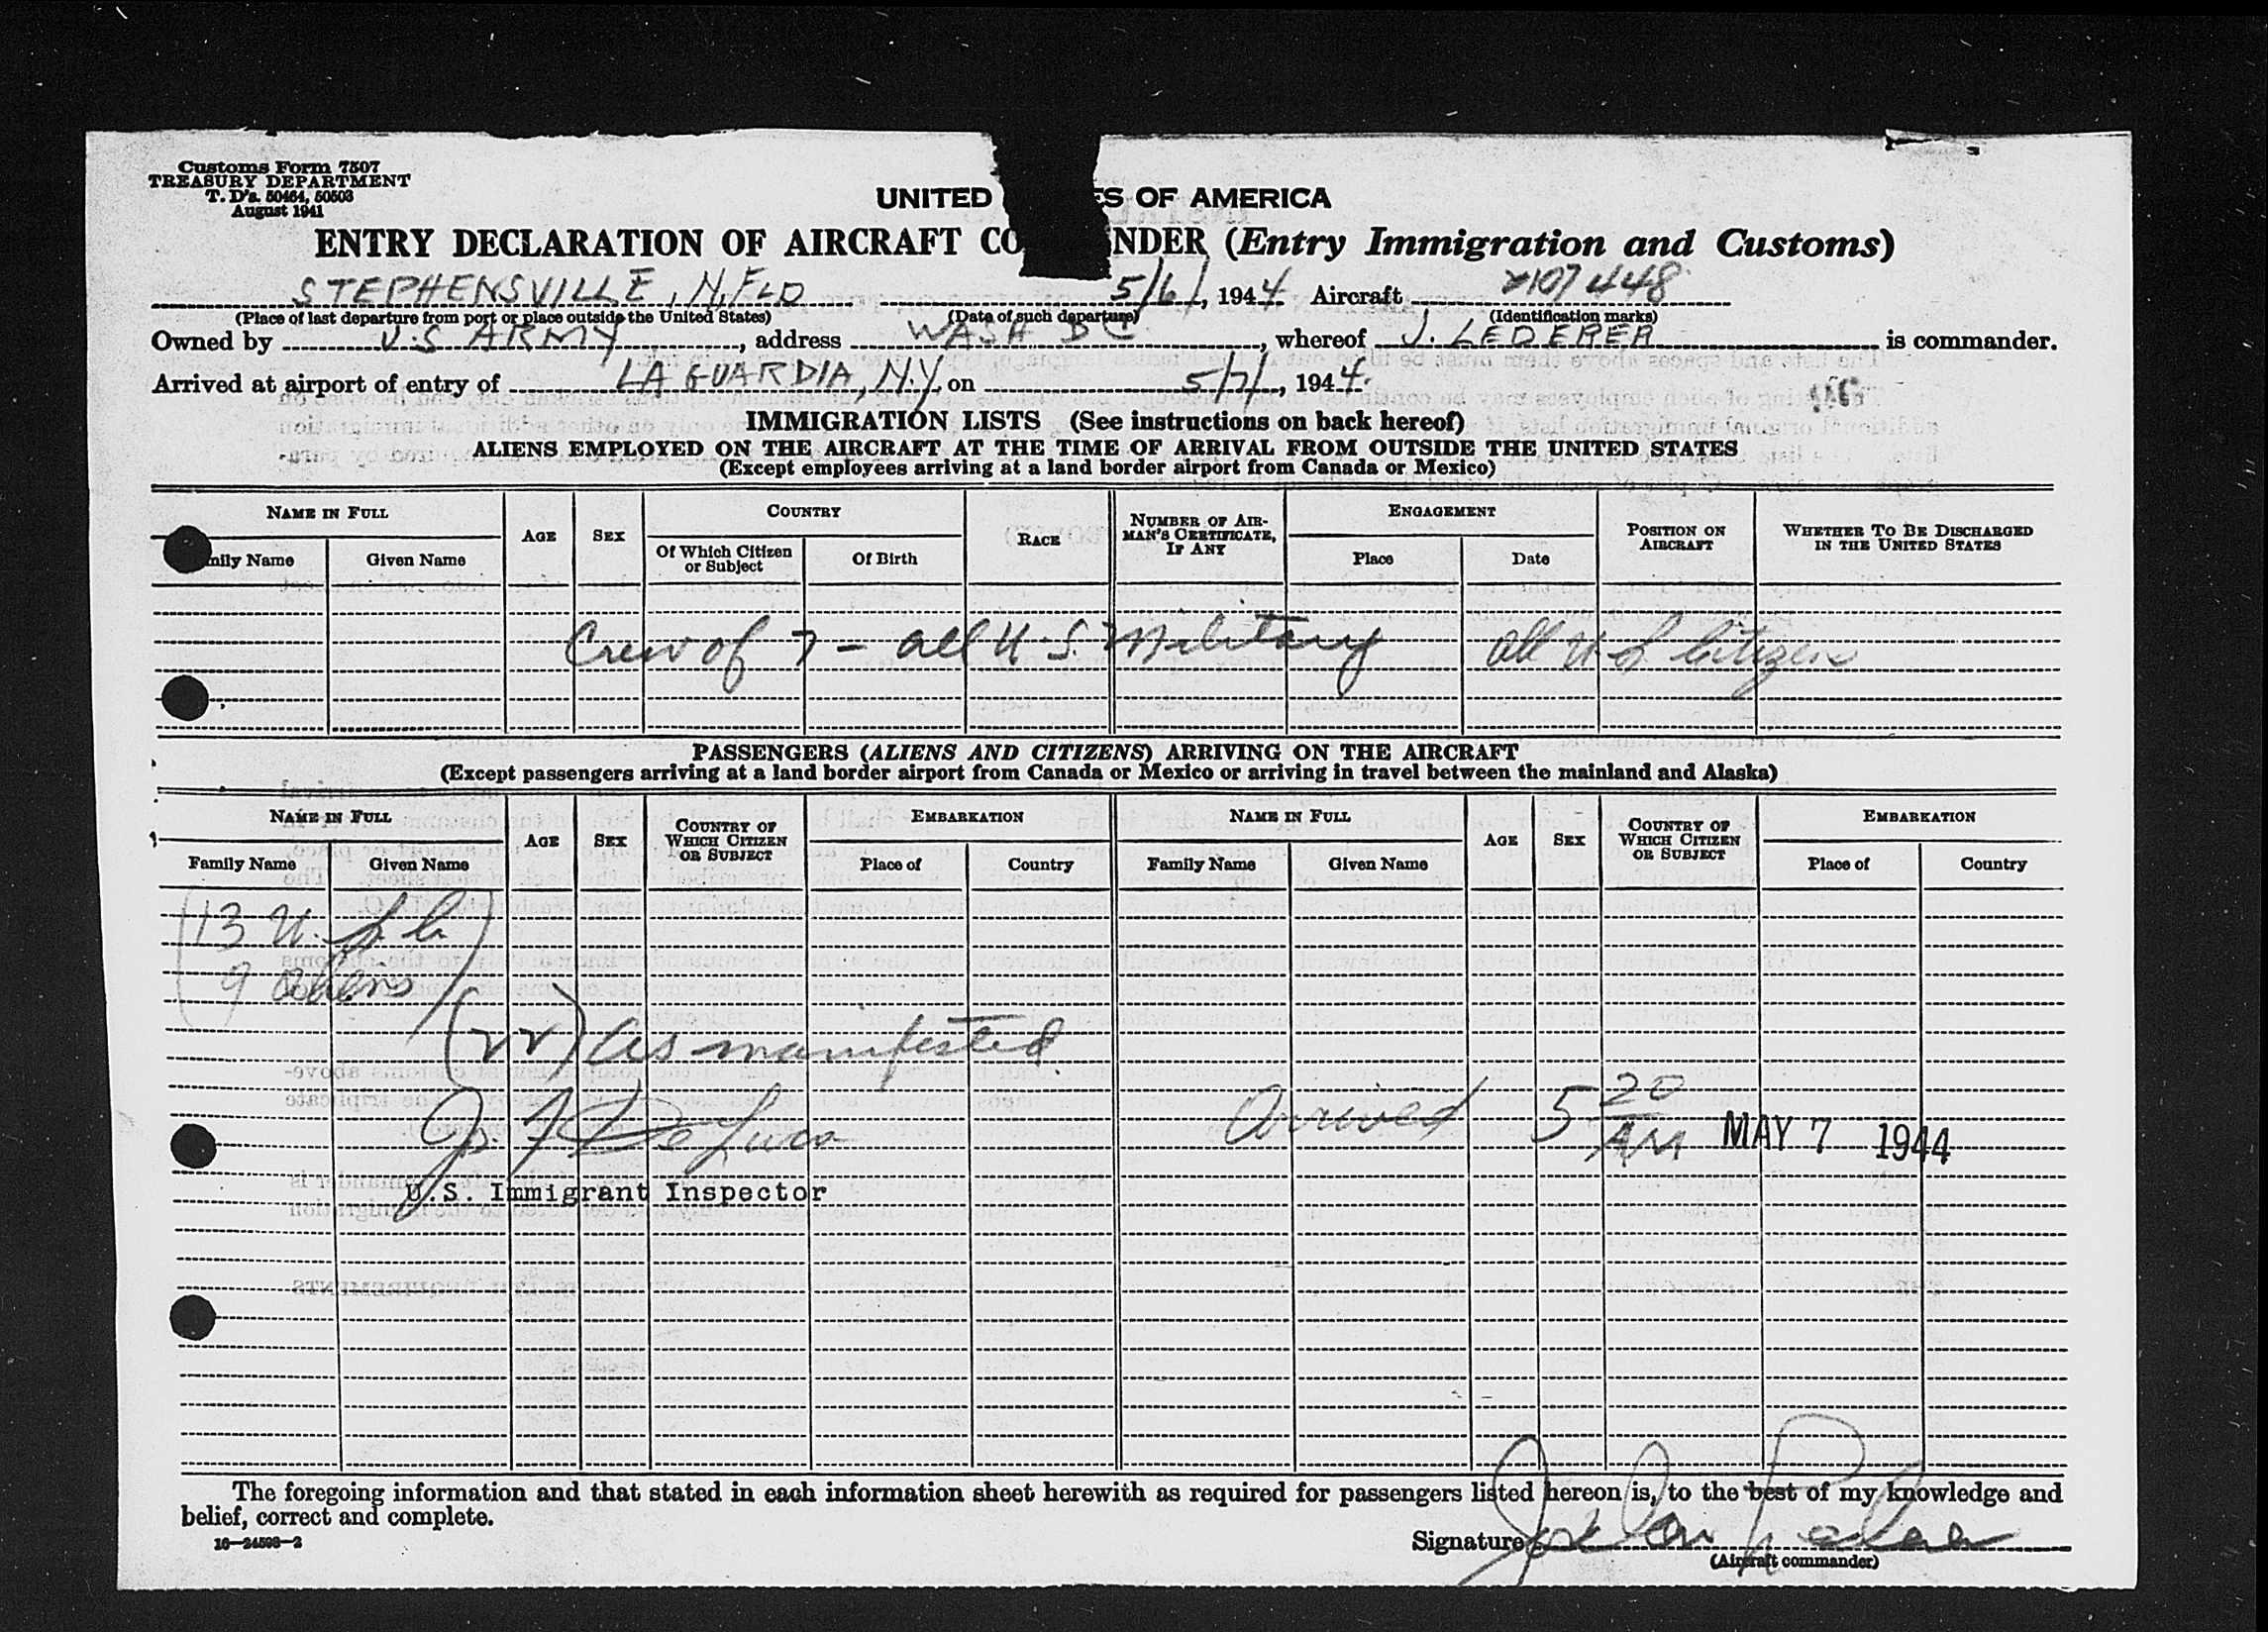 Customs Form 7507
TREASURY DEPARTMENT
T. D's. 50464, 50503
August 1941
UNITED ES OF AMERICA
ENTRY DECLARATION OF AIRCRAFT CO NDER (Entry Immigration and Customs)
STEPHENSVILLE, N.FLD 5/6/, 1944 Aircraft 107448
(Place of last departure from port or place outside the United States) (Date of such departure) (Identification marks)
Owned by U.S ARMY, address WASH DC, whereof J. LEDERER is commander.
Arrived at airport of entry of LA GUARDIA, N.Y. on 5/7/, 1944.
IMMIGRATION LISTS (See instructions on back hereof)
ALIENS EMPLOYED ON THE AIRCRAFT AT THE TIME OF ARRIVAL FROM OUTSIDE THE UNITED STATES
(Except employees arriving at a land border airport from Canada or Mexico)
NAME IN FULL AGE SEX COUNTRY RACE NUMBER OF AIRMAN'S CERTIFICATE, IF ANY ENGAGEMENT POSITION ON AIRCRAFT WHETHER TO BE DISCHARGED IN THE UNITED STATES
mily Name Given Name Of Which Citizen or Subject Of Birth Place Date
Crew of 7 - all U.S. Military all U S Citizens
PASSENGERS (ALIENS AND CITIZENS) ARRIVING ON THE AIRCRAFT
(Except passengers arriving at a land border airport from Canada or Mexico or arriving in travel between the mainland and Alaska)
NAME IN FULL AGE SEX COUNTRY OF WHICH CITIZEN OR SUBJECT EMBARKATION NAME IN FULL AGE SEX COUNTRY OF WHICH CITIZEN OR SUBJECT EMBARKATION
Family Name Given Name Place of Country Family Name Given Name Place of Country
(13 U.S.C.)
9 aliens
(22) as manifested.
De Luca Arrived 5 20 AM MAY 7 1944
U.S. Immigrant Inspector
The foregoing information and that stated in each information sheet herewith as required for passengers listed hereon is, to the best of my knowledge and
belief, correct and complete.
16—24598—2
Signature
(Aircraft commander)